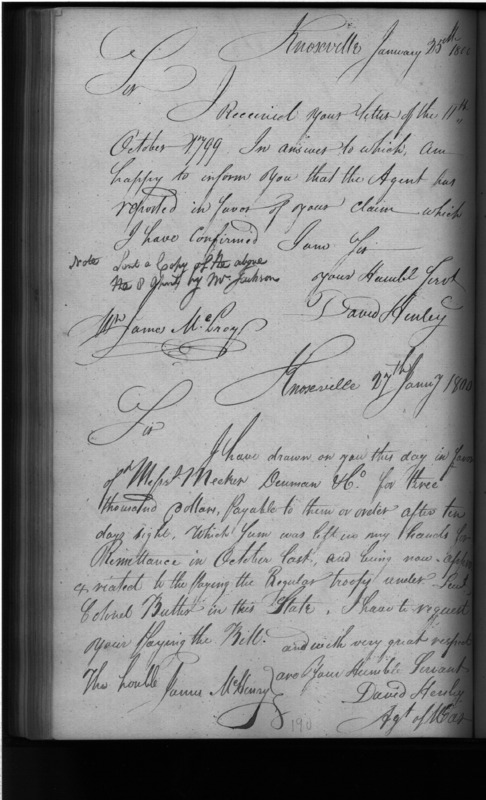 Knoxville January 25th 1800
Sir
I Received your letter of the 11th
October 1799. In answer to which, am
happy to inform you that the Agent has
reported in favor of your claim which
I have Confirmed I am Sir
Note Sent a Copy of the above
the 8 by Mr Jackson
your Humbl Servt
David Henley
Mr James McElroy
Knoxville 27th Janry 1800
Sir
I have drawn on you this day in favor
of Messrs Meeker Denman & Co for three
thousand Dollars, payable to them or order after ten
days sight, which sum was left in my hands for
Remittance in October last, and being now approp
riated to the paying the Regular troops under Lieut
Colonel Butler in this State, I have to request
your paying the Bill. and with very great respect
The honble James McHenry
are your Humble Servant
David Henley
Agt of War
190